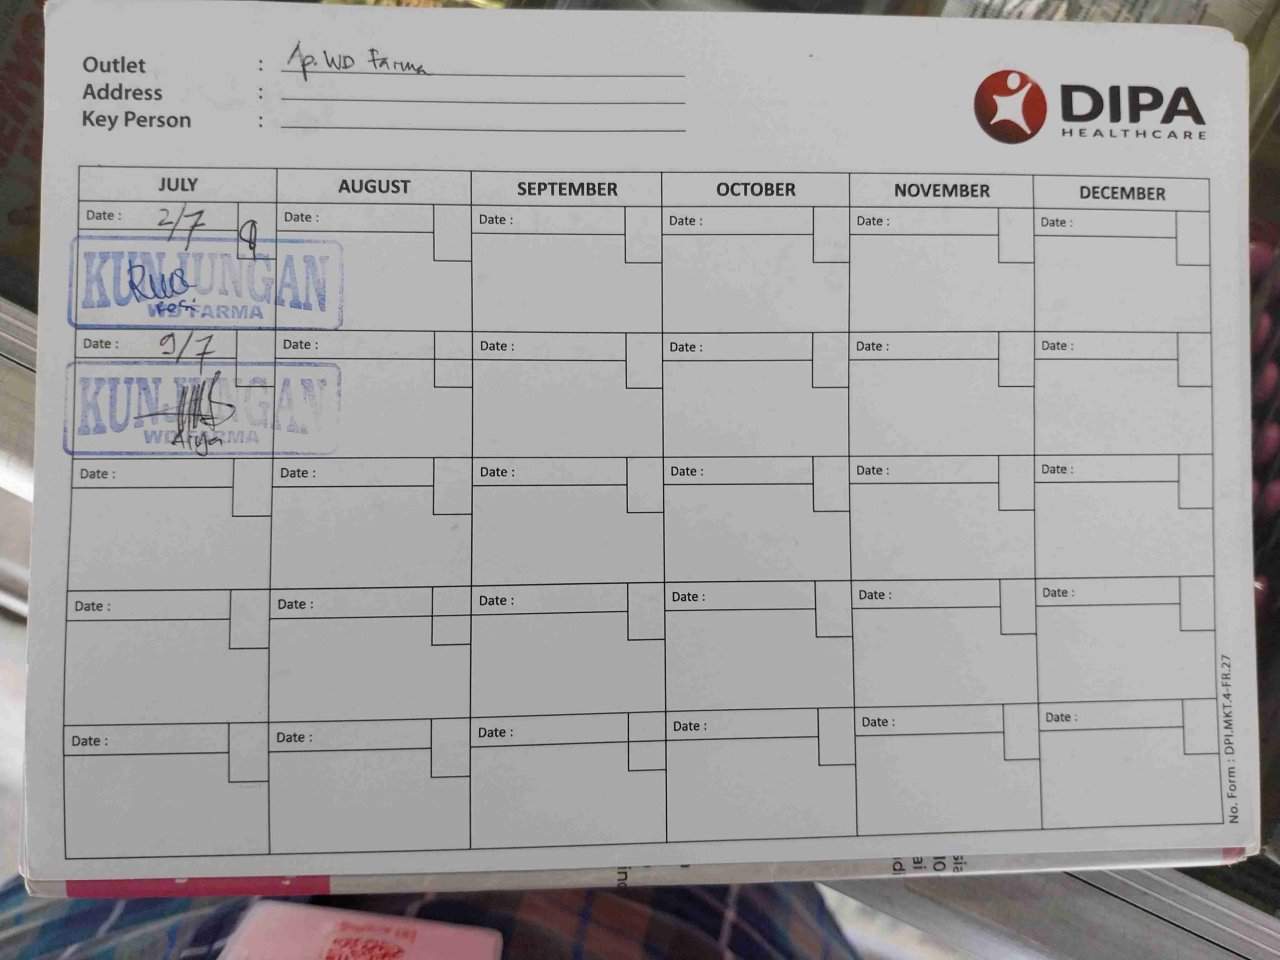 Outlet : Ap. WD Farma
Address :
Key Person :
DIPA
HEALTHCARE
JULY AUGUST SEPTEMBER OCTOBER NOVEMBER DECEMBER
Date : 2/7 Date : Date : Date : Date : Date :
KUNJUNGAN
WD FARMA
Date : 9/7 Date : Date : Date : Date : Date :
KUNJUNGAN
WD FARMA
Date : Date : Date : Date : Date : Date :
Date : Date : Date : Date : Date : Date :
Date : Date : Date : Date : Date : Date :
No. Form : DPI.MKT.4-FR.27